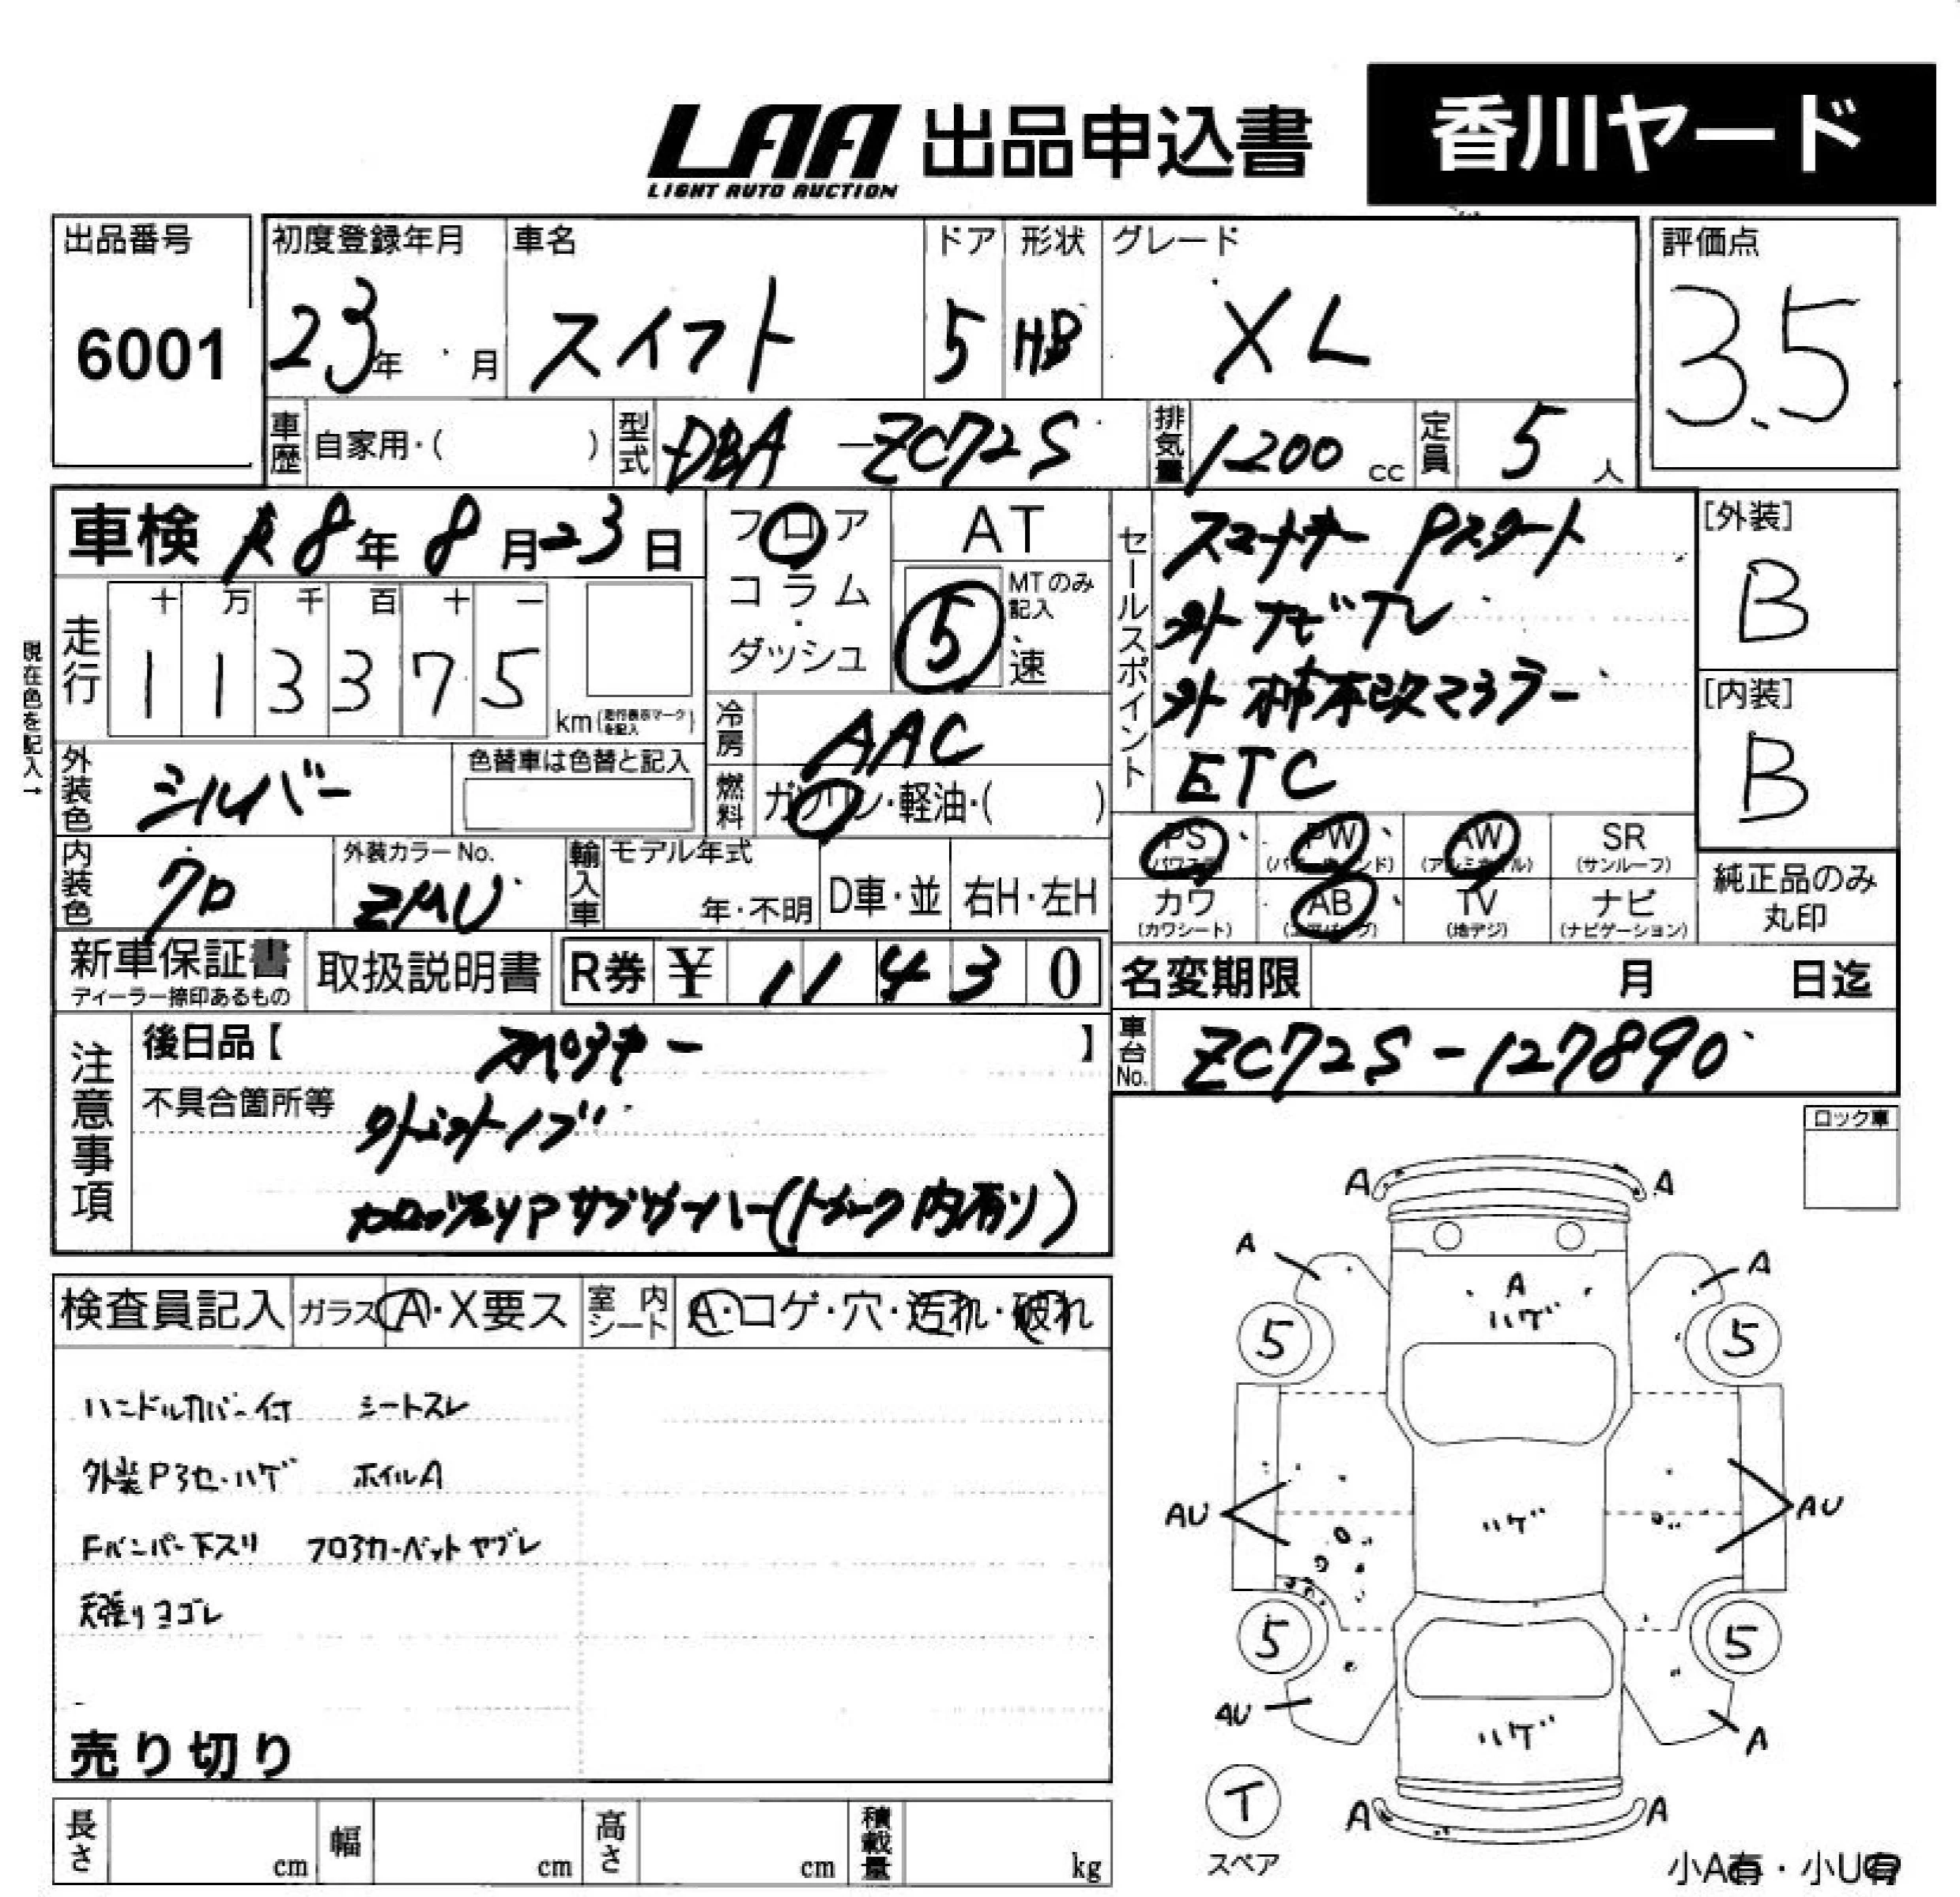 LAA 出品申込書 香川ヤード
LIGHT AUTO AUCTION
出品番号 初度登録年月 車名 ドア 形状 グレード 評価点
6001 23年 月 スイフト 5 HB XL 3.5
車歴 自家用・( ) 型式 DBA-ZC72S 排気量 1200 cc 定員 5 人
車検 R8年8月23日 フロア AT
コラム 5 MTのみ記入
ダッシュ 速
セールスポイント スマートキー Pスタート
外ナビTV
外柿本改マフラー
ETC
[外装]
B
[内装]
B
現在色を記入→
走行 十 万 千 百 十 一
1 1 3 3 7 5 km (走行表示マークを記入)
冷房 AAC
外装色 シルバー 色替車は色替と記入
燃料 ガソリン・軽油・( )
PS (パワステ) PW (パワーウィンド) AW (アルミホイル) SR (サンルーフ)
カワ (カワシート) AB (エアバッグ) TV (地デジ) ナビ (ナビゲーション)
純正品のみ
丸印
内装色 クロ 外装カラーNo. ZMU 輸入車 モデル年式 年・不明 D車・並 右H・左H
新車保証書 取扱説明書 R券 ¥ 11430
ディーラー捺印あるもの
名変期限 月 日迄
車台No. ZC72S-127890
注意事項
後日品【 】
不具合箇所等
サブウーハー(トランク内有り)
ロック車
検査員記入 ガラス A・X要ス 室内シート A・コゲ・穴・汚れ・破れ
ハンドルカバー付 シートスレ
外装Pヨセ・ハゲ ホイルA
Fバンパー下スリ フロアカーペットヤブレ
天張りヨゴレ
売り切り
A A
A A
A
ハゲ
5 5
AU ハゲ AU
5 5
AU ハゲ A
T
スペア
A A
小A有・小U有
長さ cm 幅 cm 高さ cm 積載量 kg